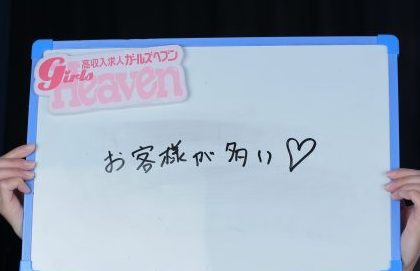 高収入求人ガールズヘブン
Girls
Heaven
お客様が多い♡